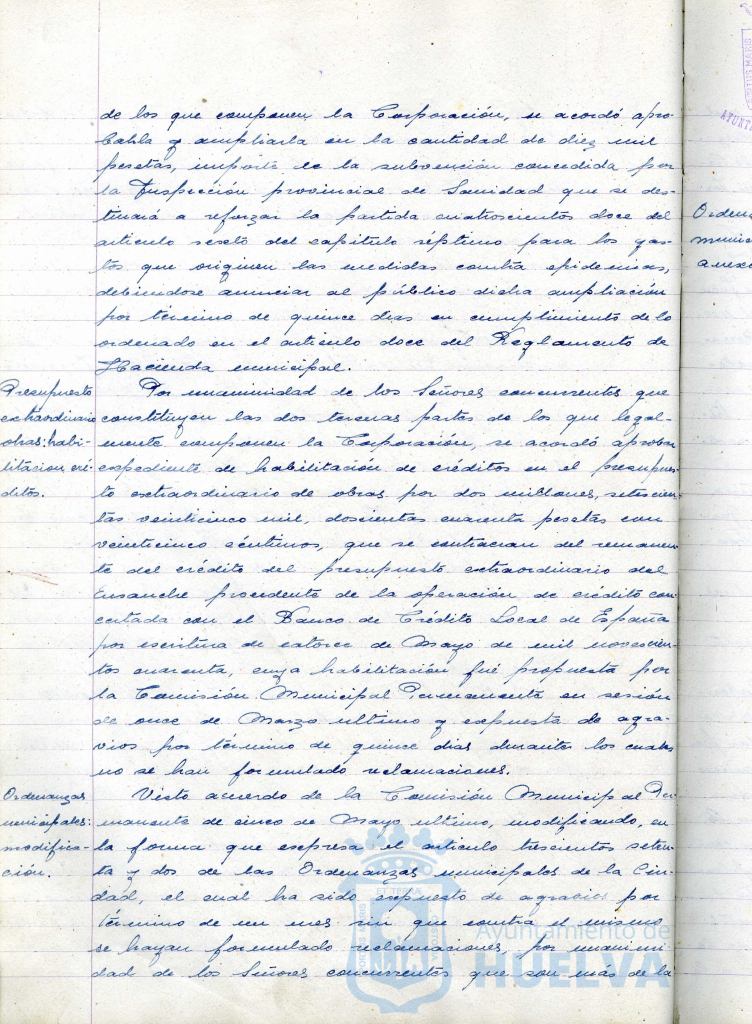 de los que componen la Corporación, se acordó apro-
barla y ampliarla en la cantidad de diez mil
pesetas, importe de la subvención concedida por
la Inspección provincial de Sanidad que se des-
tinará a reforzar la partida cuatroscientos doce del
articulo sexto del capitulo séptimo para los gas-
tos que originen las medidas contra epidemias,
debiendose anunciar al público dicha ampliación
por termino de quince dias en cumplimiento de lo
ordenado en el articulo doce del Reglamento de
Hacienda municipal.
Presupuesto
extraordinario
obras: habi-
litacion cré-
ditos.
Por unanimidad de los Señores concurrentes que
constituyen las dos terceras partes de los que legal-
mente componen la Corporación, se acordó aprobar
expediente de habilitación de créditos en el presupues-
to extraordinario de obras por dos millones, setecien-
tas veinticinco mil, doscientas cuarenta pesetas con
veinticinco céntimos, que se contraean del remanen-
te del crédito del presupuesto extraordinario del
Ensanche procedente de la operación de crédito con-
certada con el Banco de Crédito Local de España
por escritura de catorce de Mayo de mil novecien-
tos cuarenta, cuya habilitación fué propuesta por
la Comisión Municipal Permanente en sesión
de once de Marzo ultimo y expuesta de agra-
vios por término de quince dias durante los cuales
no se han formulado reclamaciones.
Ordenanzas
municipales:
modifica-
ción.
Visto acuerdo de la Comisión Municipal Per-
manente de cinco de Mayo ultimo, modificando, en
la forma que expresa el articulo trescientos seten-
ta y dos de las Ordenanzas municipales de la Ciu-
dad, el cual ha sido expuesto de agravios por
término de un mes sin que contra el mismo
se hayan formulado reclamaciones, por unanimi-
dad de los Señores concurrentes que son más de la
Ayuntamiento de
HUELVA
Ordena
munici
anexo